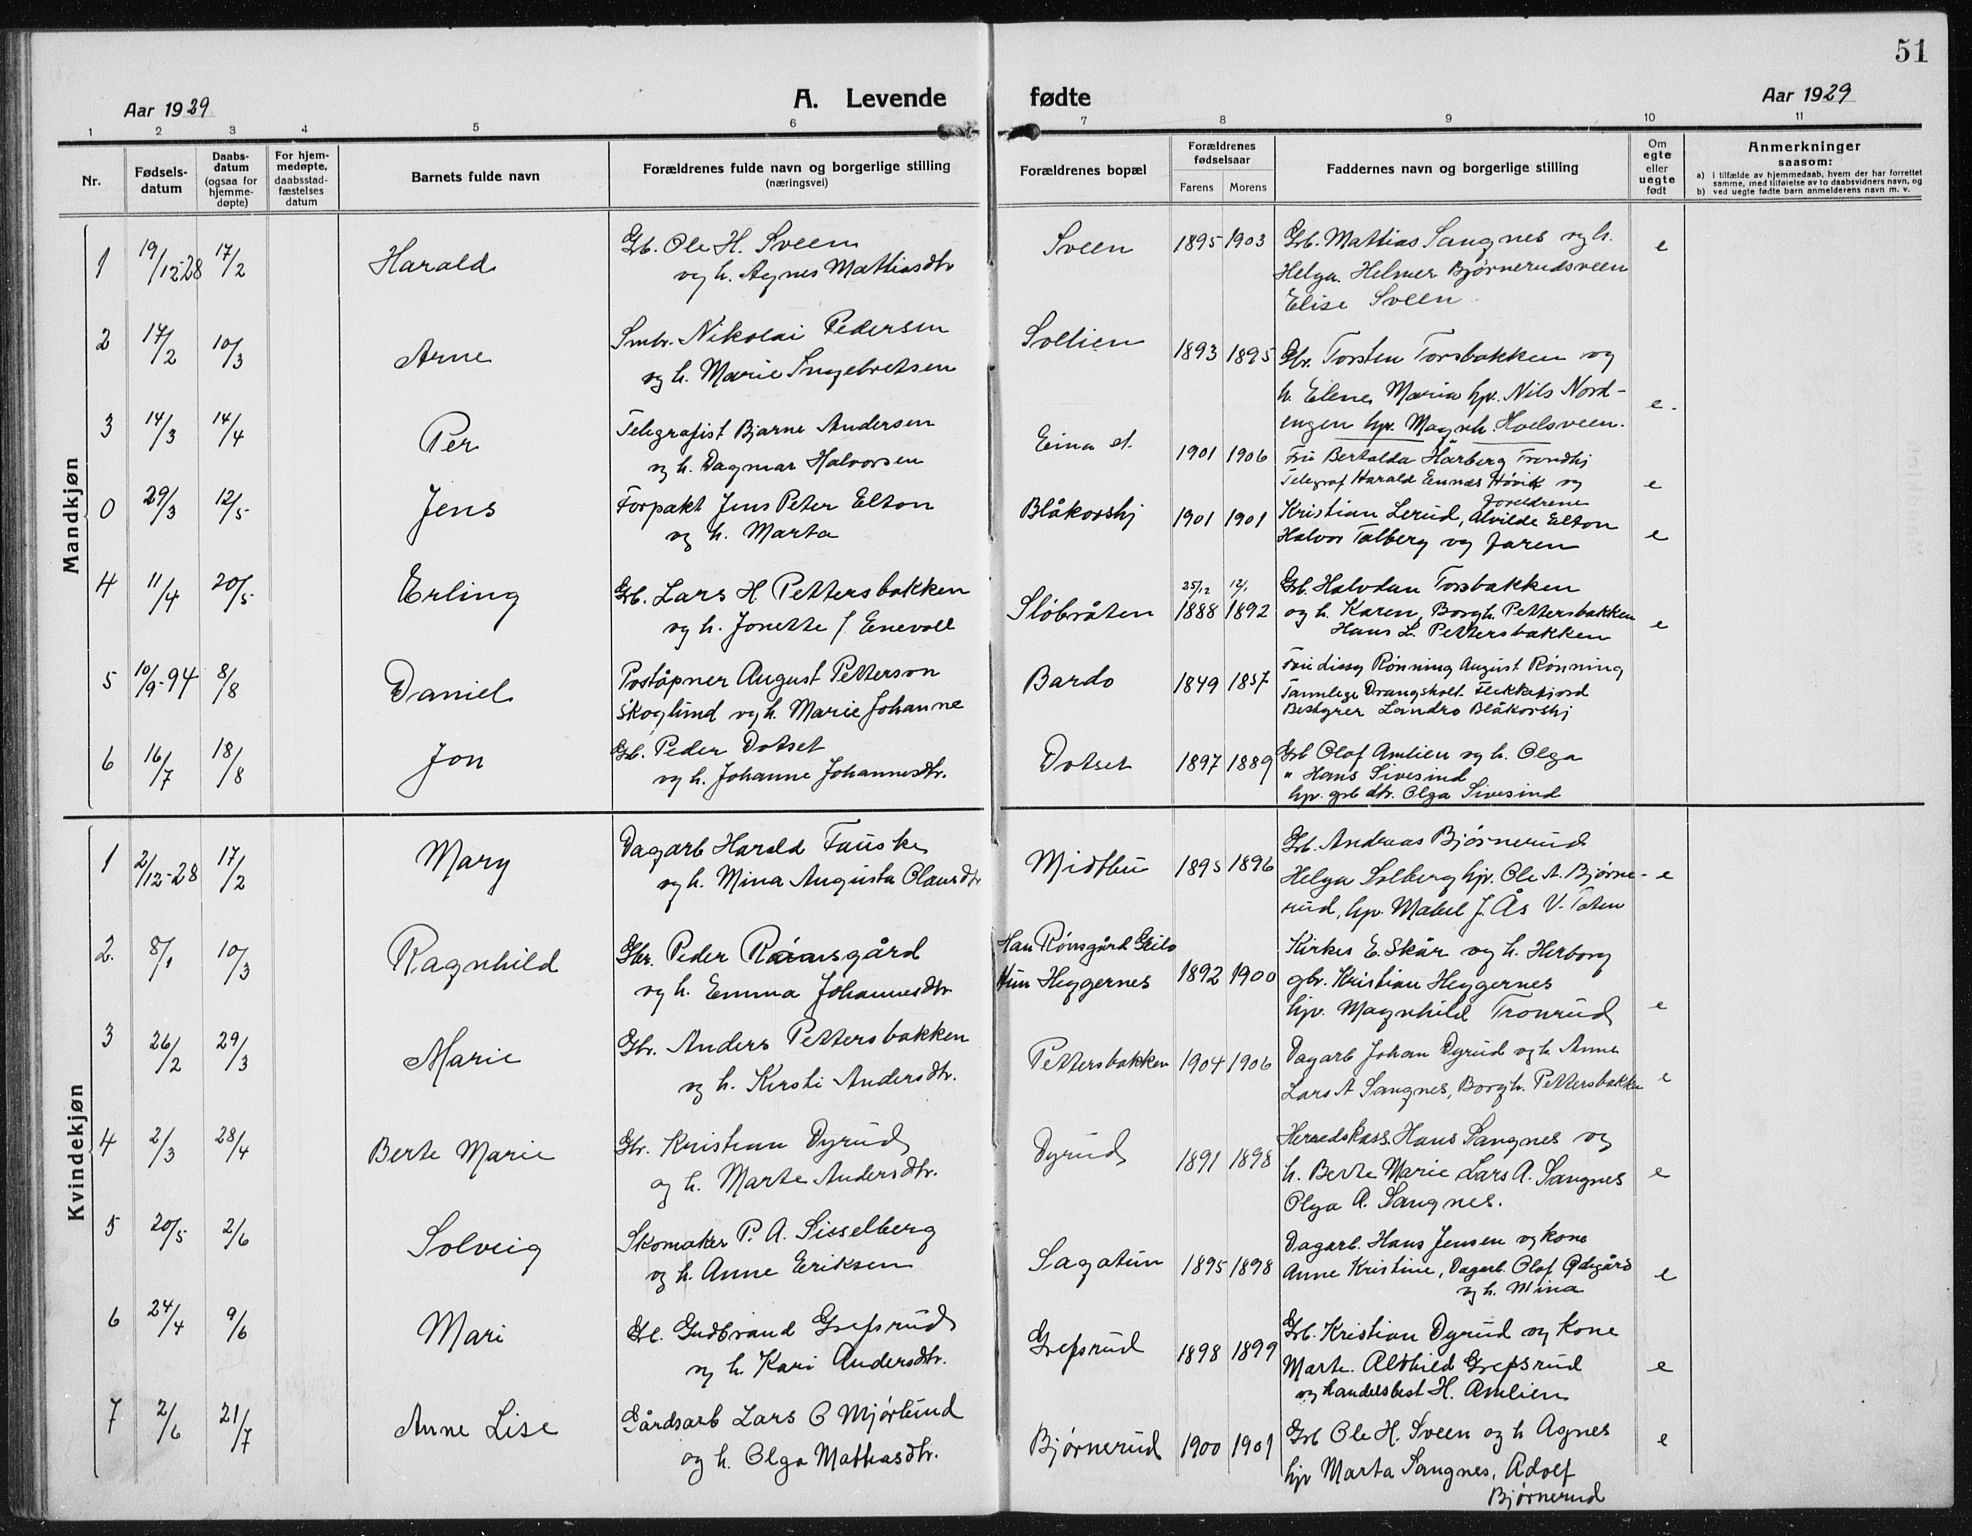 51
Aar 1929
A. Levende fødte
Aar 1929
1 2 3 4 5 6 7 8 9 10 11
Nr.
Fødsels-
datum
Daabs-
datum
(ogsaa for
hjemme-
døpte)
For hjem-
medøpte,
daabsstad-
fæstelses
datum
Barnets fulde navn
Forældrenes fulde navn og borgerlige stilling
(næringsvei)
Forældrenes bopæl
Forældrenes
fødselsaar
Farens Morens
Faddernes navn og borgerlige stilling
Om
egte
eller
uegte
født
Anmerkninger
saasom:
a) i tilfælde av hjemmedaab, hvem der har forrettet
samme, med tilføielse av to daabsvidners navn, og
b) ved uegte fødte barn anmelderens navn m. v.
Mandkjøn
1 19/12-28 17/2 Harald
Gb. Ole H. Sveen
og h. Agnes Mathiasdtr
Sveen 1895 1903
Grb. Mattias Sangnes og h.
Helga. Helmer Bjørnerudsveen
Elise Sveen
e
2 17/2 10/3 Arne
Smbr. Nikolai Pedersen
og h. Marie Ingebretsen
Sollien 1893 1895
Gbr. Torsten Torsbakken og
h. Elene, Maria hp. Nils Nord-
engen hp. Magnh. Hoelsveen.
e.
3 14/3 14/4 Per
Telegrafist Bjarne Andersen
og h. Dagmar Halvorsen
Eina st. 1901 1906
Fru Bertalda Harberg Trondhj
Telegraf Harald Ennæs Høvik og
foreldrene
e
0 29/3 12/5 Jens
Forpakt Jens Peter Elton
og h. Marta
Blåkorshj 1901 1901
Kristian Lerud, Alvilde Elton
Halvor Talberg og faren
e
4 11/4 20/5 Erling
Grb. Lars H. Pettersbakken
og h. Jonette f. Enevoll
Slöbråten 25/12 1888 12/1 1892
Grb. Halvdan Torsbakken
og h. Karen, Borgh. Pettersbakken
Hans L. Pettersbakken
e
5 10/9-94 8/8 Daniel
Poståpner August Petterson
Skoglund og h. Marie Johanne
Bardo 1849 1857
Rønning August Rønning
Tannlege Drangsholt Flekkefjord
Bestyrer Landro Blåkorshj
6 16/7 18/8 Jon
Gb. Peder Dotset
og h. Johanne Johannesdtr.
Dotset 1897 1889
Grb Olof Amlien og h. Olga
" Hans Sivesind
hp. grb dtr. Olga Sivesind
Kvindekjøn
1 2/12-28 17/2 Mary
Dagarb Harald Fauske
og h. Mina Augusta Olausdtr
Midthu 1895 1896
Grb. Andreas Bjørnerud
Helga Solberg hp. Ole A. Bjørne-
rud, hp. Mabel J. Ås V. Toten
e
2. 8/1 10/3 Ragnhild
Gbr. Peder Rømsgård
og h. Emma Johannesdtr
Han Rømsgård Geilo
Hun Heggernes
1892 1900
Kirkes E. Skår og h. Herborg
gbr. Kristian Heggernes
hp. Magnhild Tronrud
e
3 26/2 29/3 Marie
Gbr. Anders Pettersbakken
og h. Kirsti Andersdtr.
Pettersbakken 1904 1906
Dagarb Johan Dyrud og h. Anne
Lars A Sangnes, Borgh. Pettersbakken
e
4 2/3 28/4 Berte Marie
Gbr. Kristian Dyrud
og h. Marte Andersdtr.
Dyrud 1891 1898
Herredskass. Hans Sangnes og
h. Berte Marie Lars A. Sangnes
Olga A. Sangnes.
e
5 20/5 2/6 Solveig
Skomaker P. A. Sisselberg
og h. Anne Eriksen
Sagatun 1895 1898
Dagarb. Hans Jensen og kone
Anne Kristine, Dagarb. Olof Ødegård
og h. Mina
e
6 24/4 9/6 Mari
Gb. Gudbrand Grefsrud
og h. Kari Andersdtr.
Grefsrud 1898 1899
Grb. Kristian Dyrud og kone
Marte. Aldhild Grefsrud
og handelsbest H. Amlien
e
7 2/6 21/7 Anne Lise
Gårdsarb Lars O Mjørlund
og h. Olga Mathiasdtr.
Bjørnerud 1900 1901
Grb Ole H. Sveen og h Agnes
hp Marta Sangnes, Adolf
Bjørnerud
e